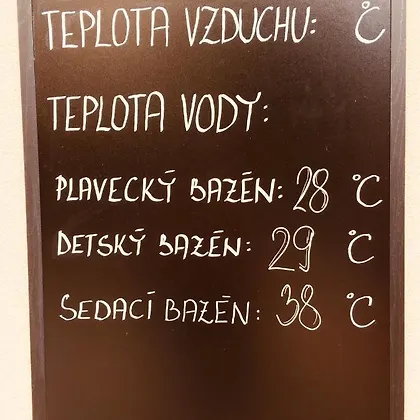 TEPLOTA VZDUCHU: °C
TEPLOTA VODY:
PLAVECKÝ BAZÉN: 28 °C
DETSKÝ BAZÉN: 29 °C
SEDACÍ BAZÉN: 38 °C